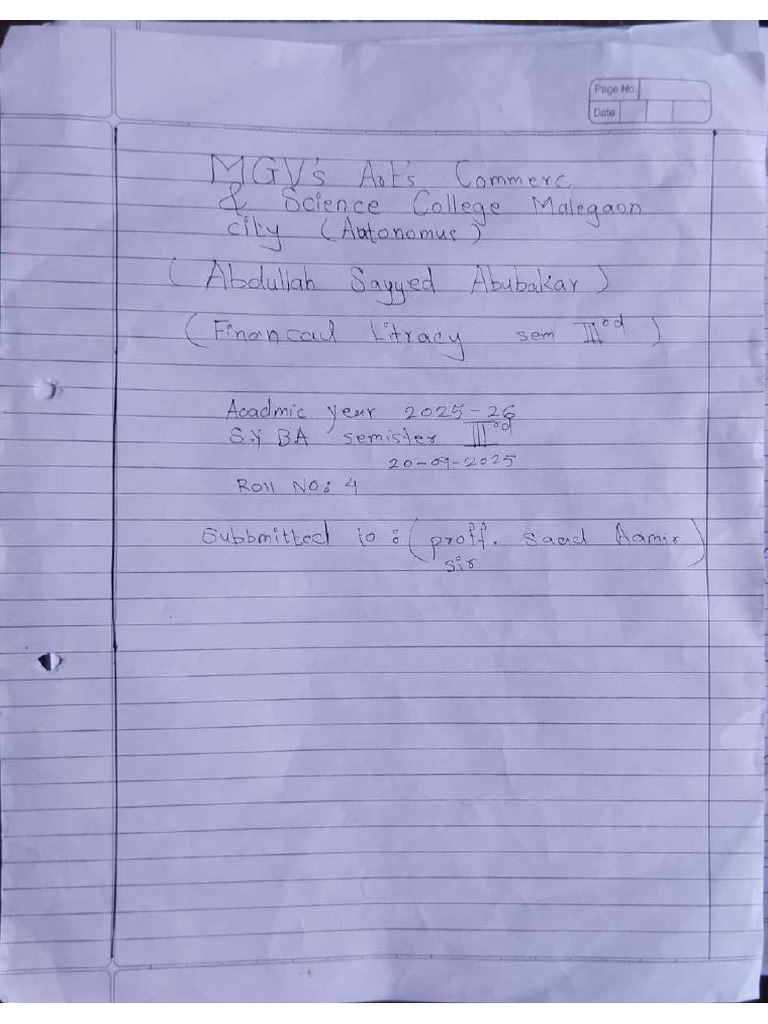 Page No.
Date
MGV's Art's Commerc
& Science College Malegaon
city (Autonomus)
(Abdullah Sayyed Abubakar)
(Financal Litracy sem III rd)
Acadmic year 2025-26
S.Y BA semister III rd
20-09-2025
Roll No: 4
Subbmitted to: (proff. Saad Aamir)
sir